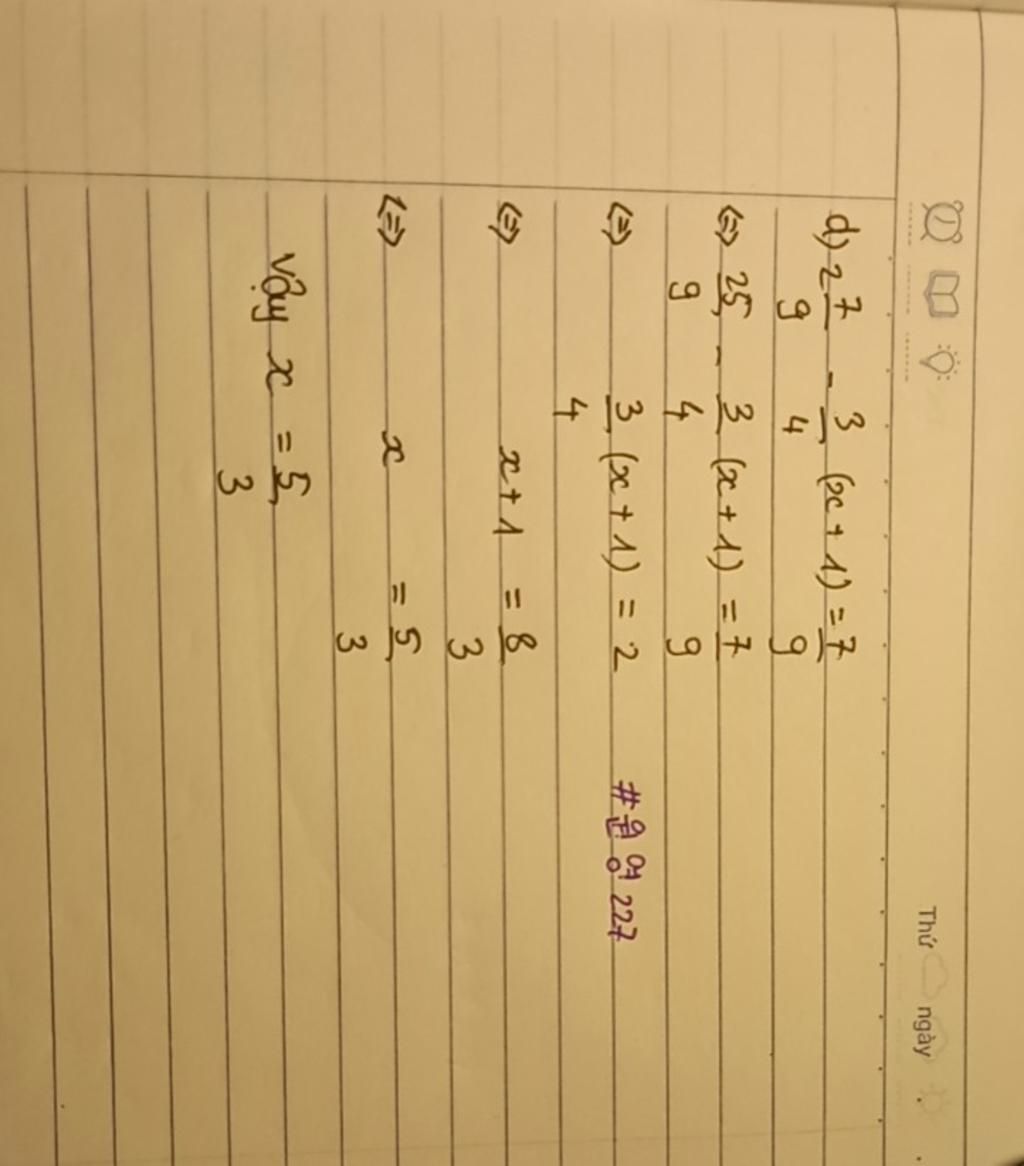 Thứ ngày
d) 2 7/9 - 3/4 (x + 1) = 7/9
<=> 25/9 - 3/4 (x + 1) = 7/9
<=> 3/4 (x + 1) = 2 # 227
<=> x + 1 = 8/3
<=> x = 5/3
Vậy x = 5/3